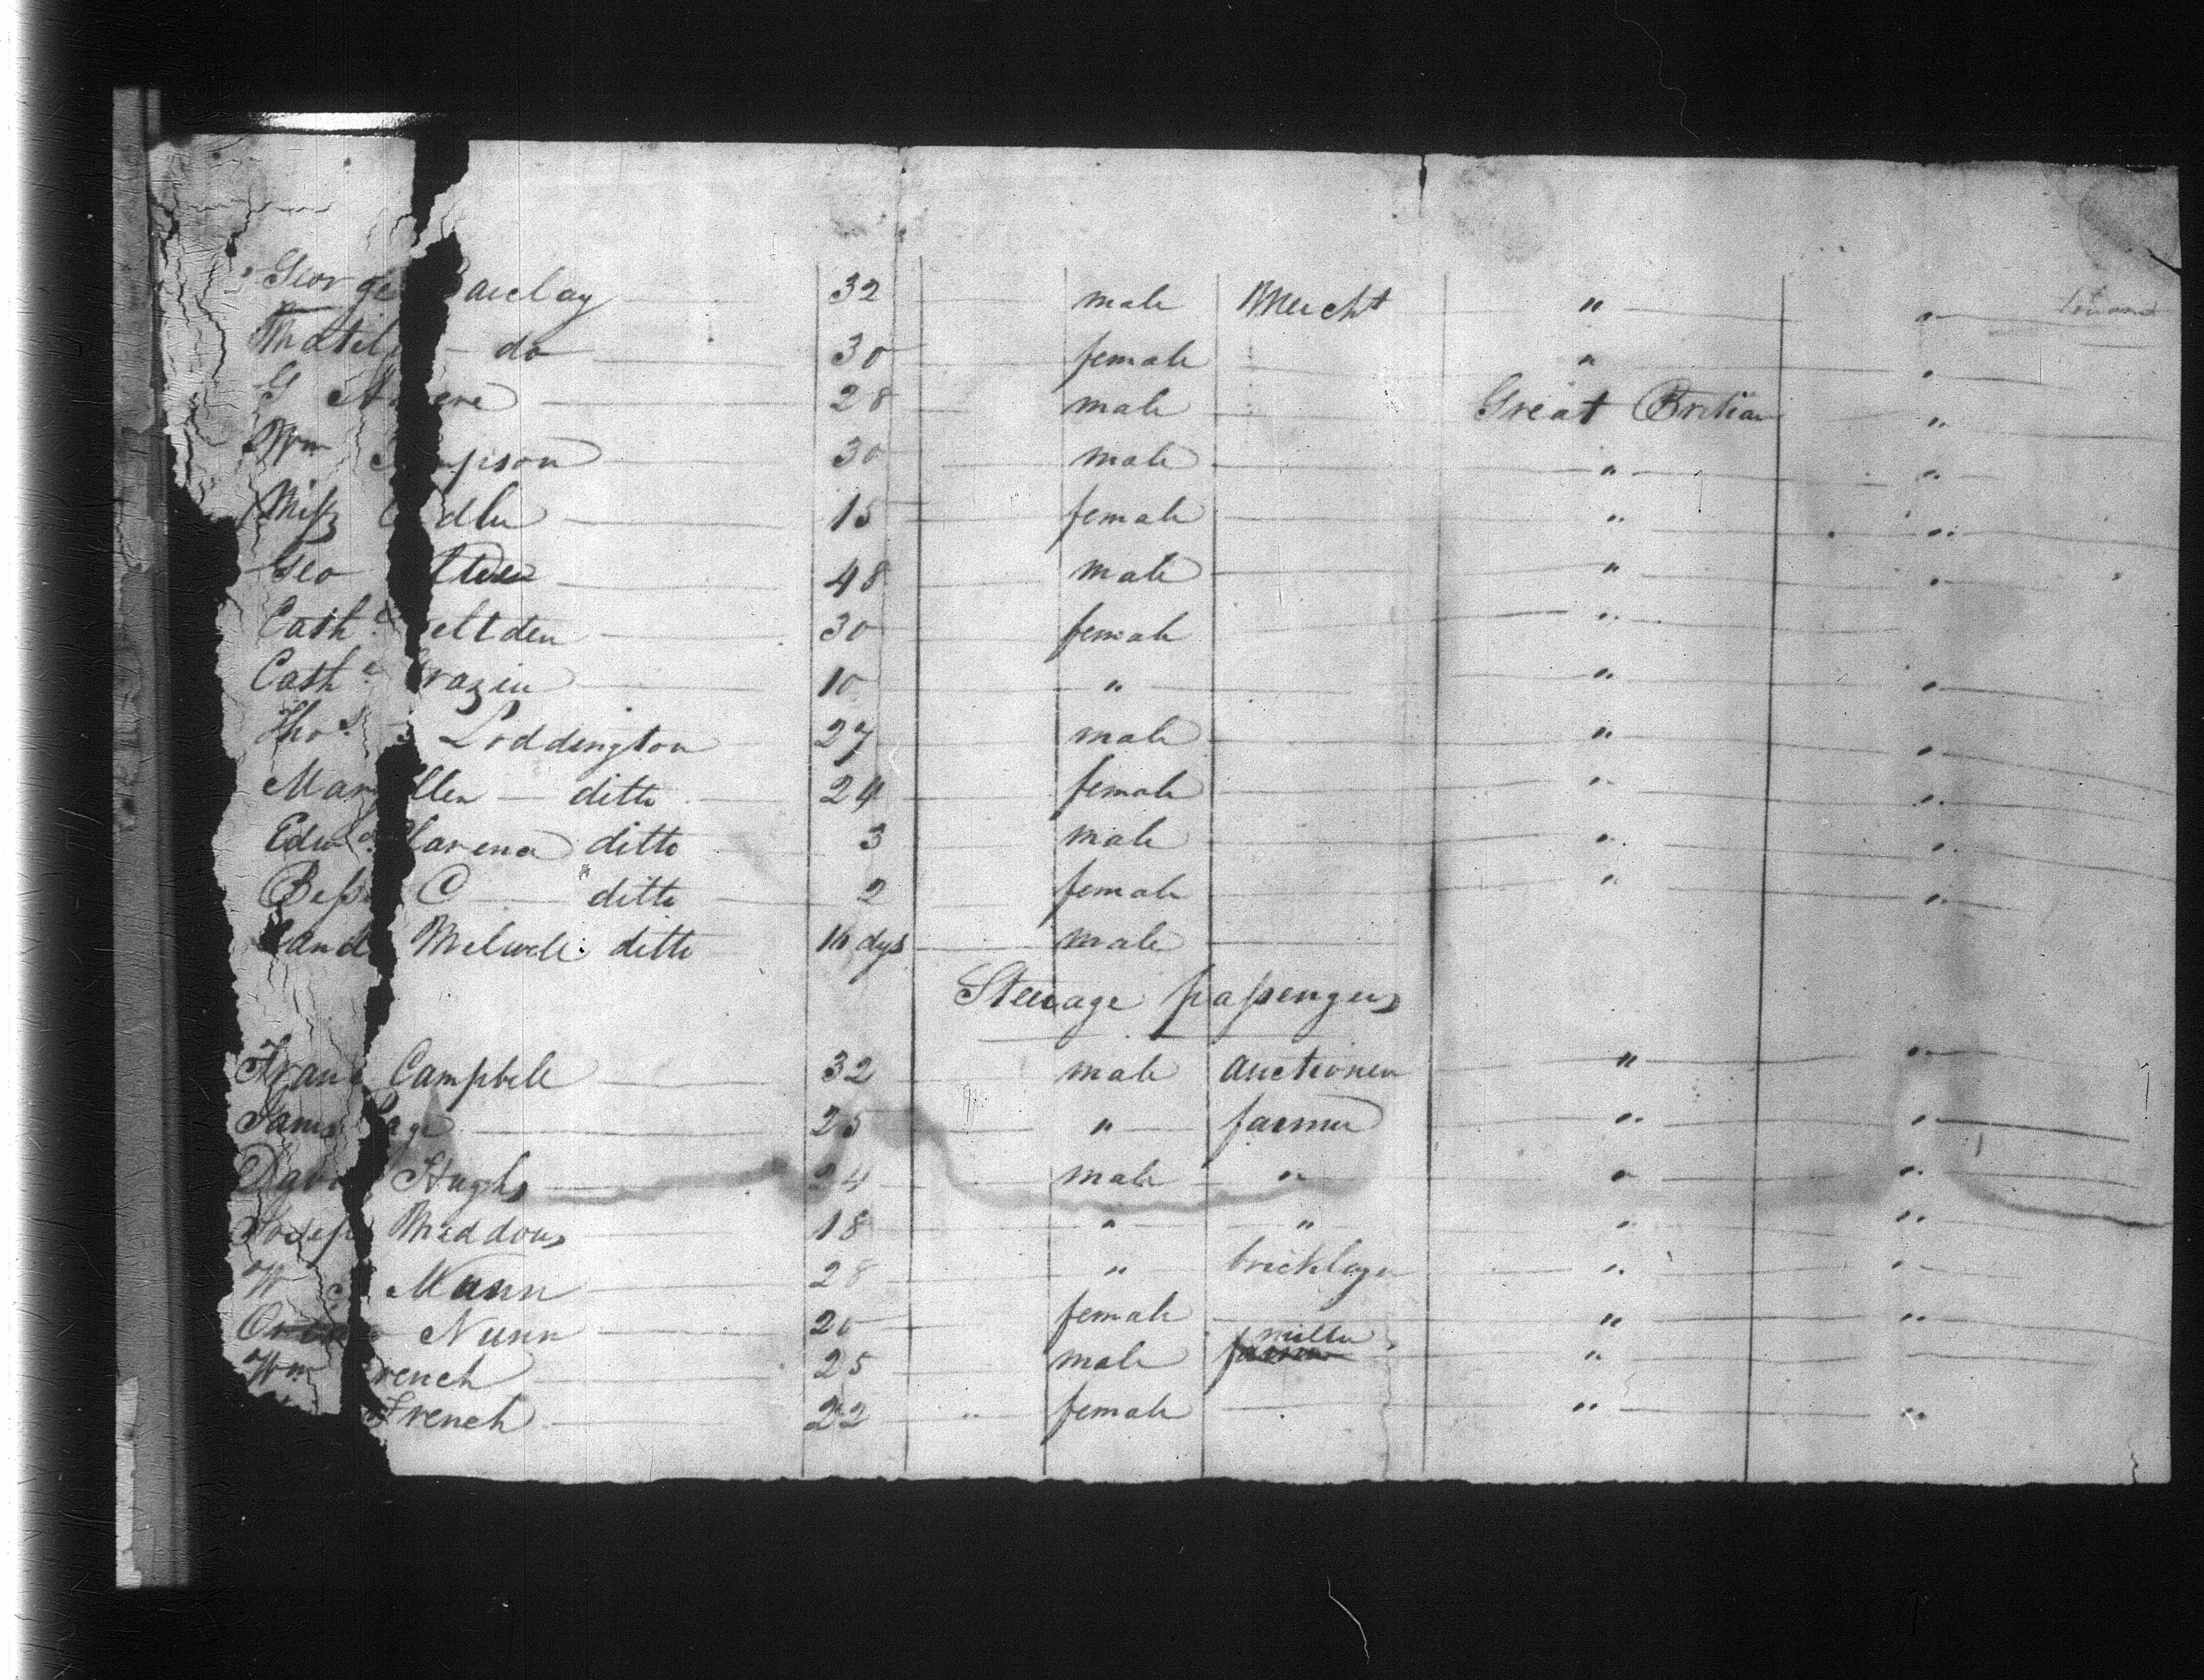 George arclay 32 male Mercht " "
Matil do 30 female " "
G ere 28 male Great Britian "
Wm mpson 30 male " "
Miss dler 15 female " "
Geo 48 male " "
Cathe eltden 30 female "
Cathe razier 10 " " "
Thos Loddington 27 male " "
Mar llen ditto 24 female " "
Edwd larence ditto 3 male " "
Bess C ditto 2 female " "
and ditto 16 dys male
Steerage passengers
Fran Campbell 32 male auctioneer " "
James Page 25 " farmer " "
Davi Hughs 24 male " " "
Joseph Meddows 18 " " " "
W Mann 28 " bricklayer " "
Nunn 20 female " "
miller
Wm rench 25 male farmer "
French 22 female " "